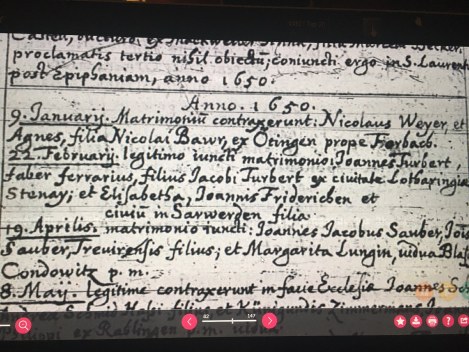 proclamatis tertio nihil obiectu; coniuncti ergo in S. Laurent
post Epiphaniam, anno 1650.
Anno. 1650.
9. Januarij. Matrimoniu contraxerunt: Nicolaus Weyer, et
Agnes, filia Nicolai Bawr, ex Ötingen prope Forbach.
22. February. legitimo iuncti matrimonio: Joannes Turbert,
faber ferrarius, filius Jacobi Turbert ex ciuitate Lotharingiae
Stenay; et Elisabetha, Joannis Friderichen et
ciuiu in Sarwerden filia
19. Aprilis. matrimonio iuncti: Joannes Jacobus Sauber, Jois
Sauber, Treuirensis filius; et Margarita Lungin, uidua Blas
Condowitz p. m.
8. Maij. legitime contraxerunt in facie Ecclesia Joannes
82
147